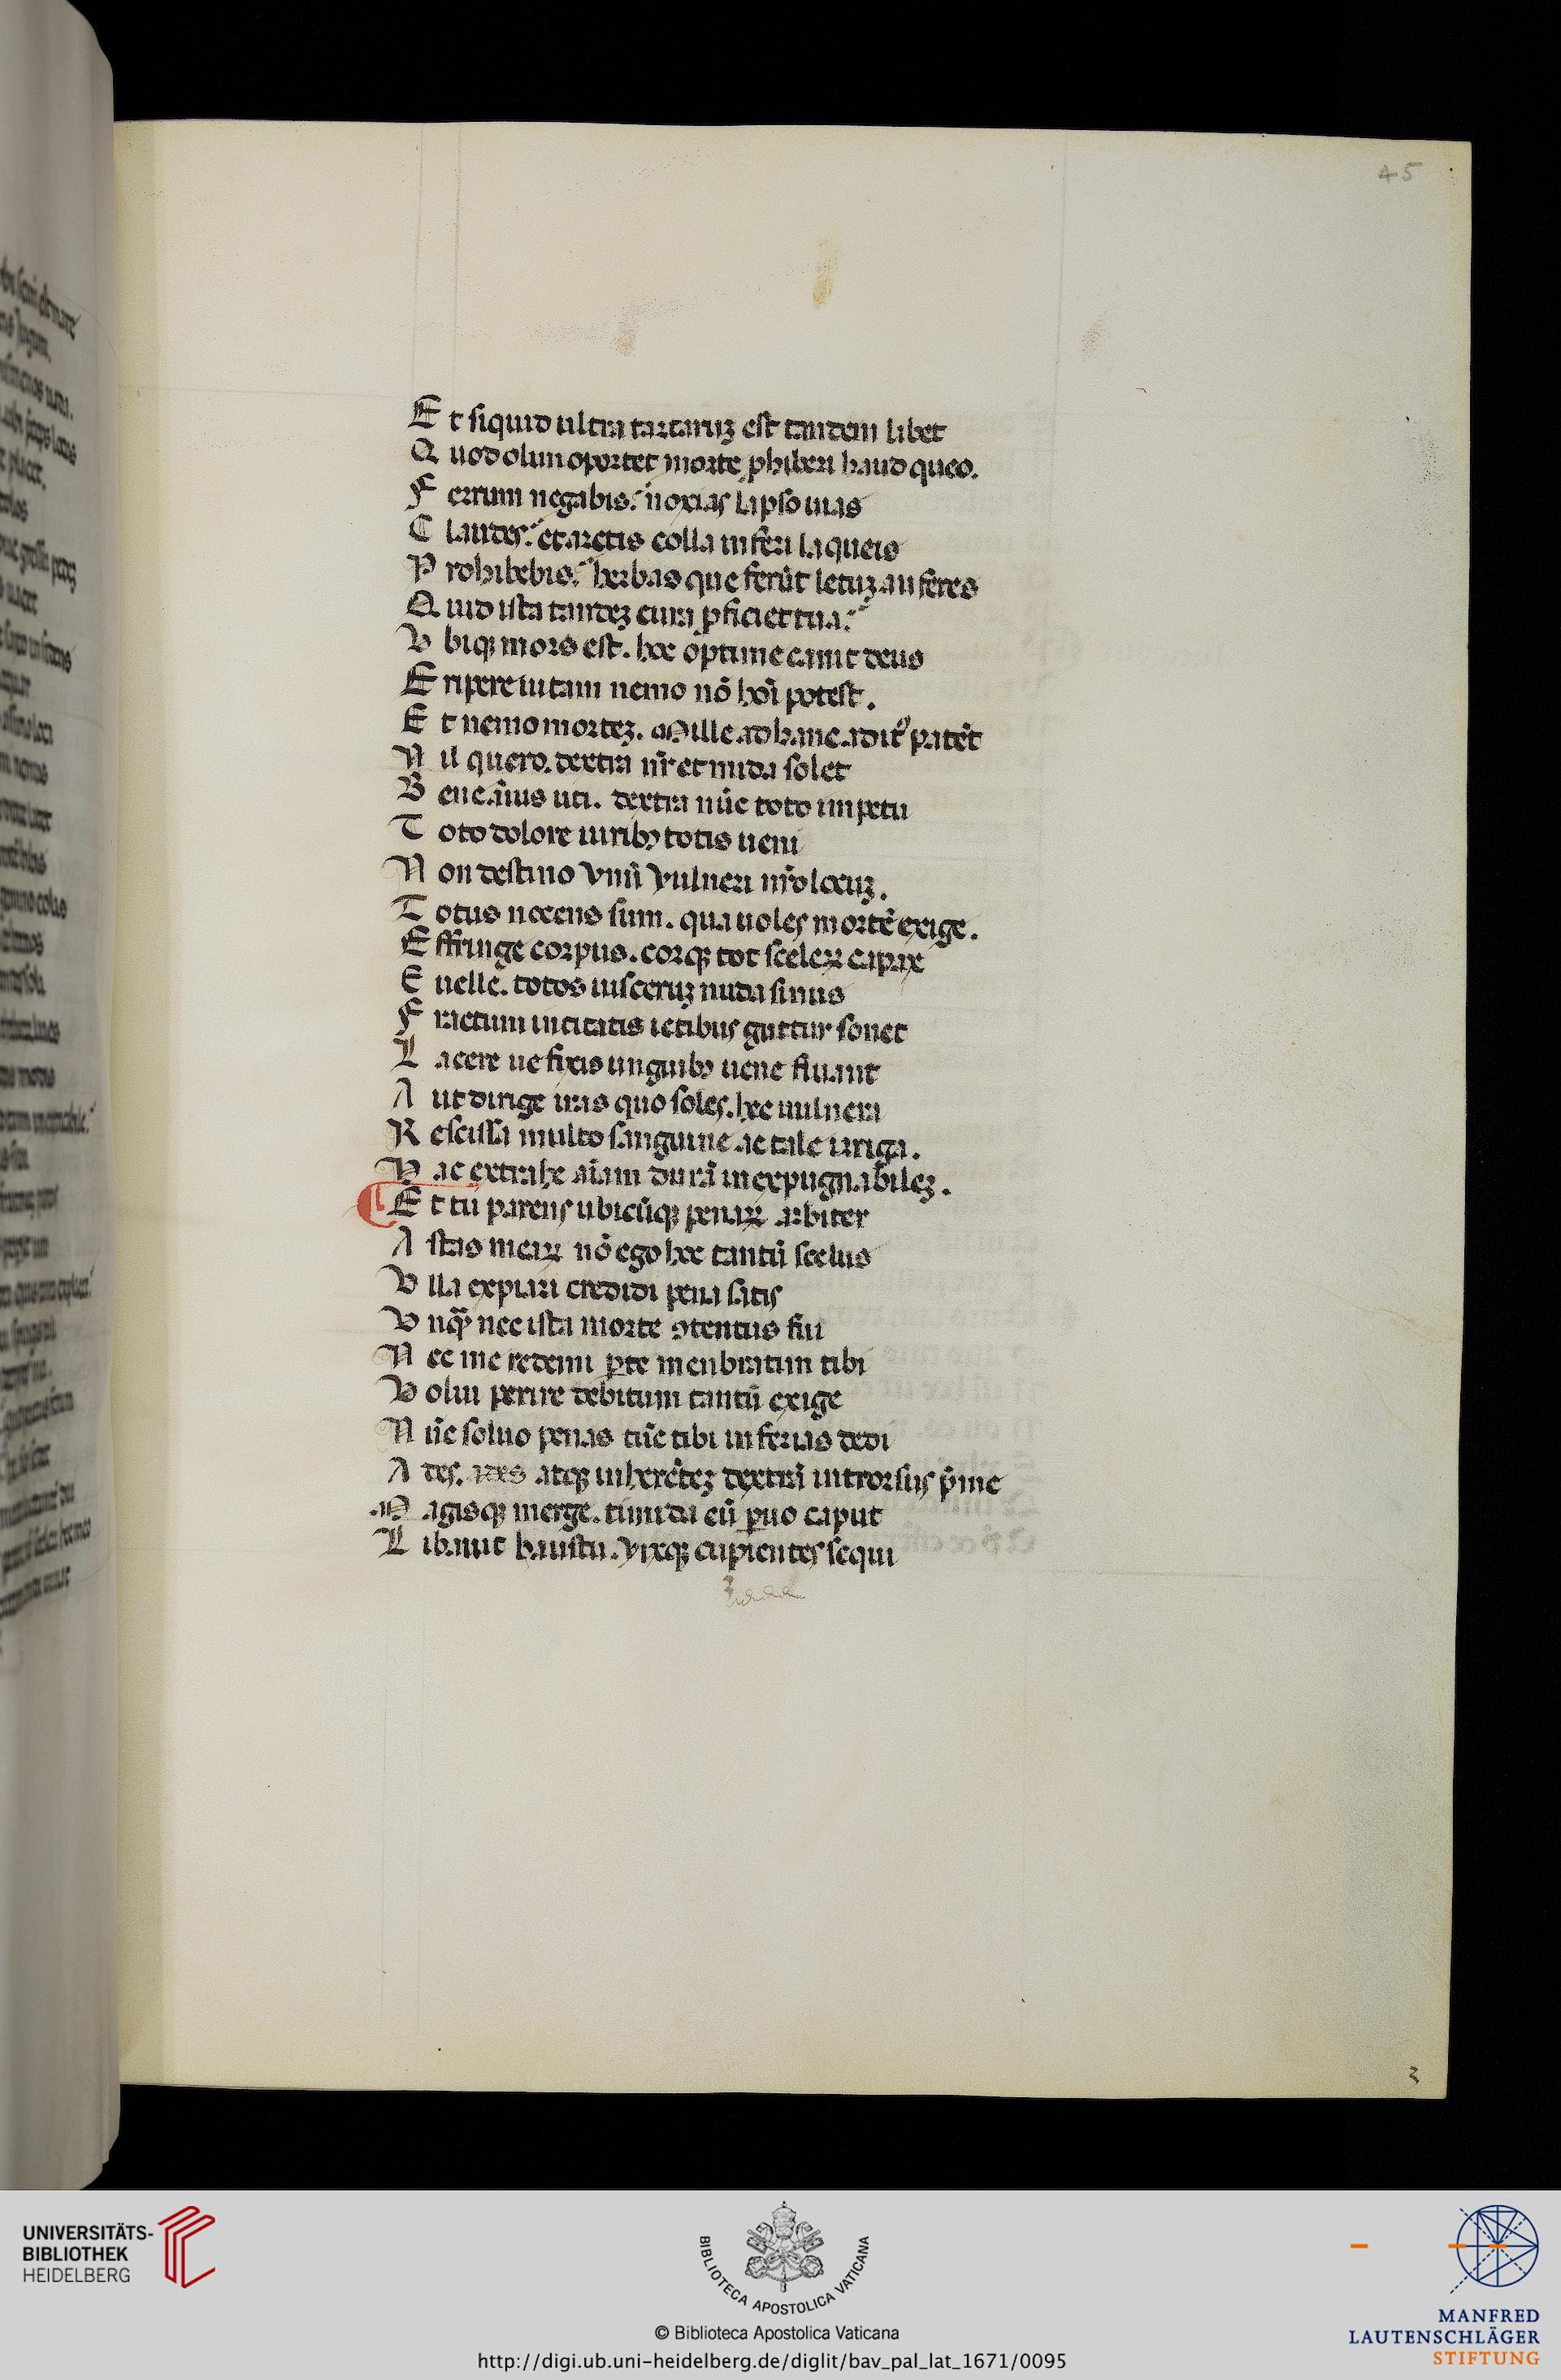 45
Et siquid ultra tartaruʒ est tandem libet
Quod olim oportet morte ꝓhiberi haud queo.
Ferrum negabis. noxias lapso uias
Claudes. et arctis colla inseri laqueis
Prohibebis. herbas que ferūt letuʒ auferes
Quid ista tandeʒ cura ꝓficiet tua.
Vbiqꝫ mors est. hoc optime cauit deus
Eripere uitam nemo nō hoī potest.
Et nemo morteʒ. Mille ad hanc aditꝰ patēt
Nil quero. dextra nr̄ et nuda solet
Bene aīus uti. dextra nūc toto impetu
Toto dolore uiribꝫ totis ueni
Non destino vnū vulneri nr̄o locuʒ.
Totus nocens sum. qua uoles mortē exige.
Effringe corpus. corqꝫ tot sceleꝝ capax
Euelle. totos uisceruʒ nuda sinus
Fractum incitatis ictibus guttur sonet
Lacere ue fixis unguibꝫ uene fluant
Aut dirige iras quo soles. hec uulnera
Rescissa multo sanguine ac tale irriga.
Hac extrahe aīam durā inexpugnabileʒ.
Et tu parens ubicūqꝫ penaꝝ arbiter
Astas meaꝝ nō ego hoc tantū scelus
Vlla expiari credidi pena satis
Vnqꝫ nec ista morte ꝯtentus fui
Nec me redemi ꝑte menbratim tibi
Volui perire debitum tantū exige
Nūc soluo penas tūc tibi inferias dedi
Ades. ades atqꝫ inherēteʒ dextrā introrsus p̄me
Magisqꝫ merge. timida cū ꝑuo caput
Libauit haustu. vixqꝫ cupientes sequi
3
UNIVERSITÄTS-
BIBLIOTHEK
HEIDELBERG
BIBLIOTECA APOSTOLICA VATICANA
© Biblioteca Apostolica Vaticana
http://digi.ub.uni-heidelberg.de/diglit/bav_pal_lat_1671/0095
MANFRED
LAUTENSCHLÄGER
STIFTUNG